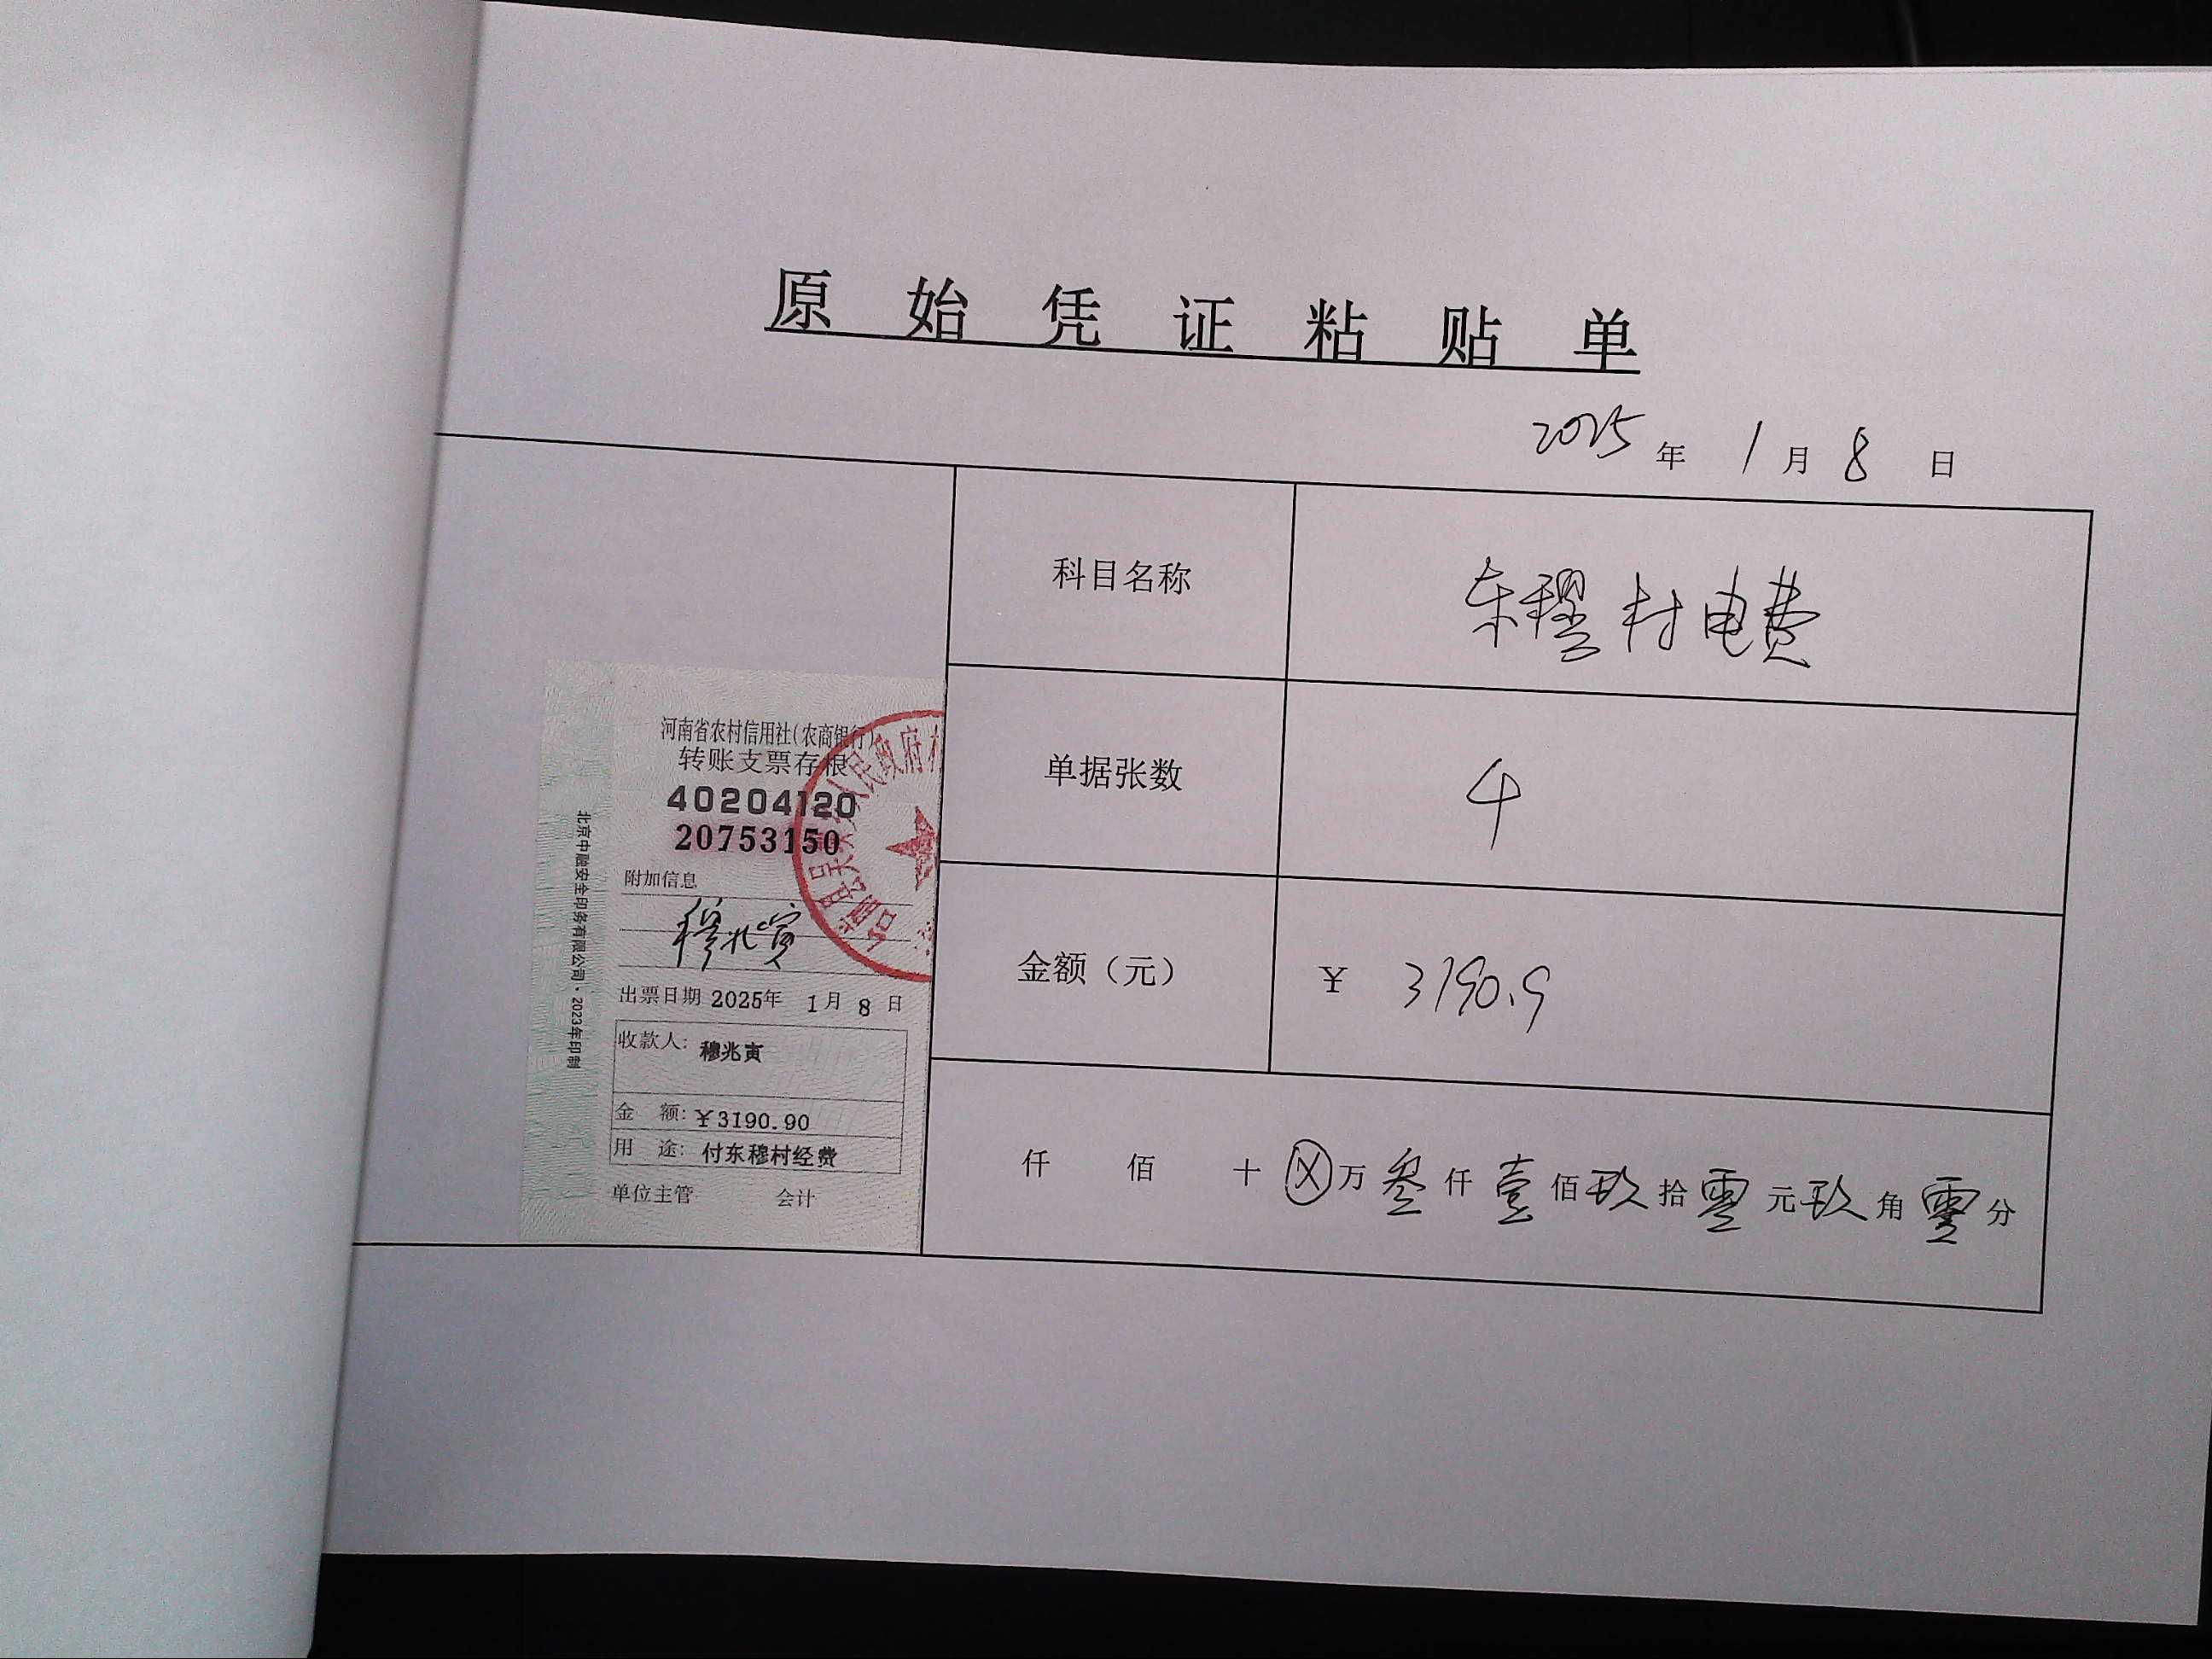 原始凭证粘贴单
2025年1月8日
科目名称 东穆村电费
单据张数 4
金额（元） ¥ 3190.9
仟 佰 十 ⓧ万叁仟壹佰玖拾零元玖角零分
河南省农村信用社(农商银行)
转账支票存根
40204120
20753150
附加信息
穆兆寅
出票日期 2025年 1月 8日
收款人: 穆兆寅
金 额: ¥3190.90
用 途: 付东穆村经费
单位主管 会计
北京中融安全印务有限公司·2023年印制
人民政府